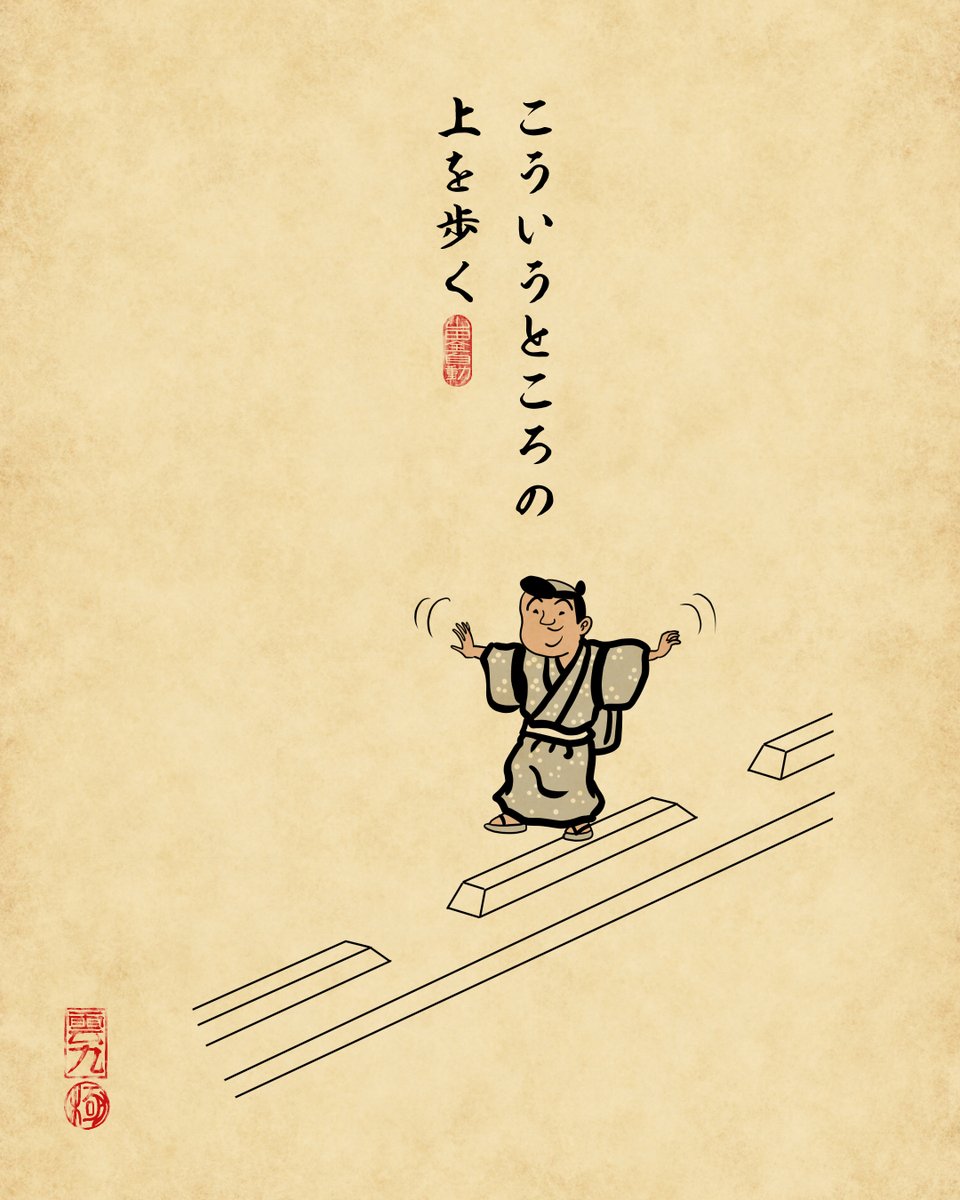 こういうところの
上を歩く